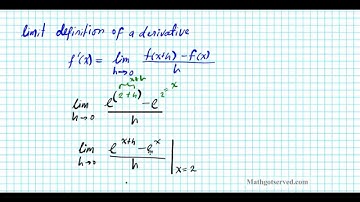 limit definition of a derivative
f'(x) = lim h→0 f(x+h) - f(x) / h
x+h
lim h→0 e^(2+h) - e^2 = x / h
lim h→0 e^x+h - e^x / h | x=2
Mathgotserved.com